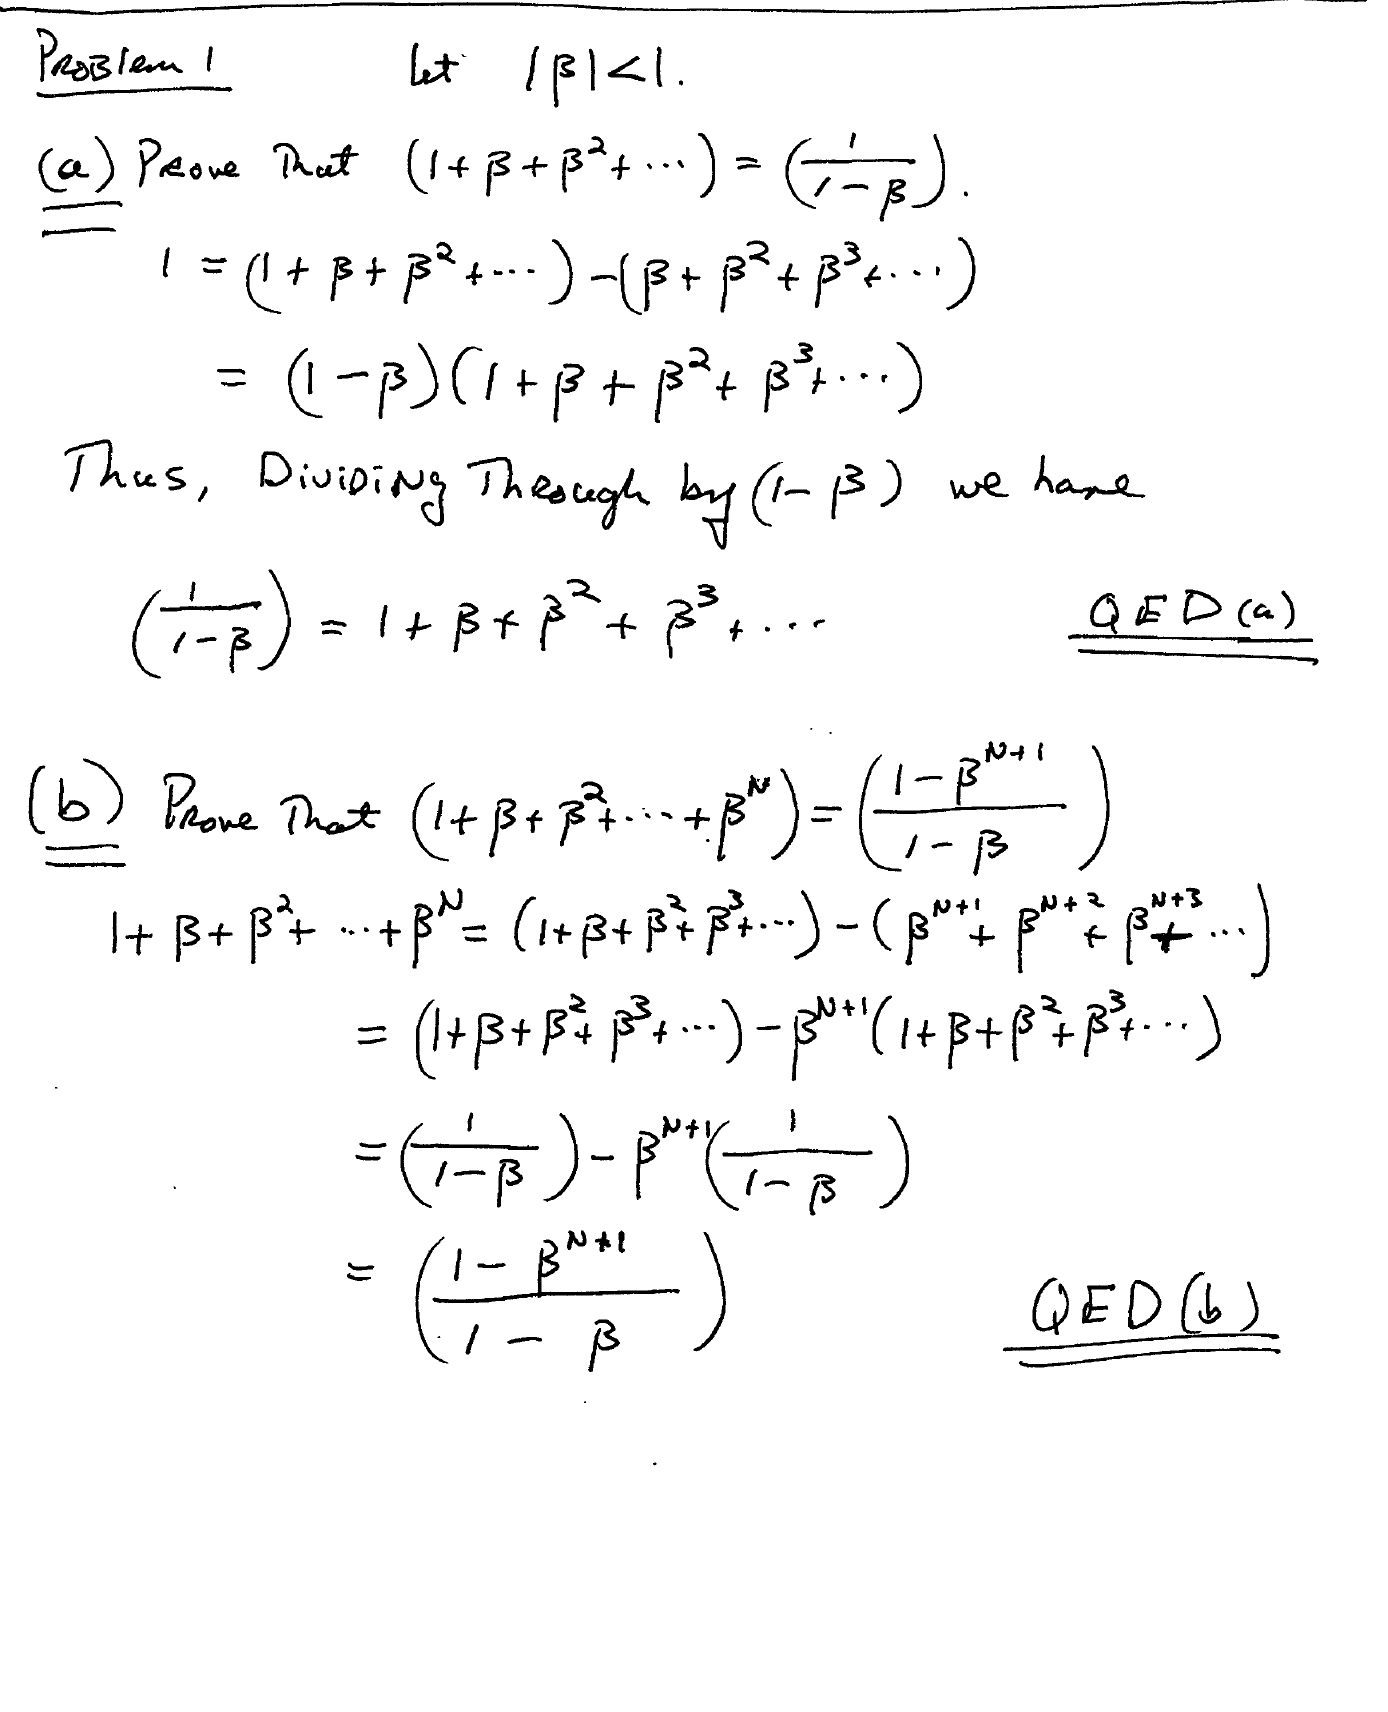 Problem 1 Let |β|<1.
(a) Prove That (1+β+β²+⋯) = (1/(1-β)).
1 = (1+β+β²+⋯)-(β+β²+β³+⋯)
= (1-β)(1+β+β²+β³+⋯)
Thus, Dividing Through by (1-β) we have
(1/(1-β)) = 1+β+β²+β³+⋯ QED(a)
(b) Prove That (1+β+β²+⋯+β^N) = ((1-β^(N+1))/(1-β))
1+β+β²+⋯+β^N = (1+β+β²+β³+⋯)-(β^(N+1)+β^(N+2)+β^(N+3)+⋯)
= (1+β+β²+β³+⋯)-β^(N+1)(1+β+β²+β³+⋯)
= (1/(1-β))-β^(N+1)(1/(1-β))
= ((1-β^(N+1))/(1-β)) QED(b)